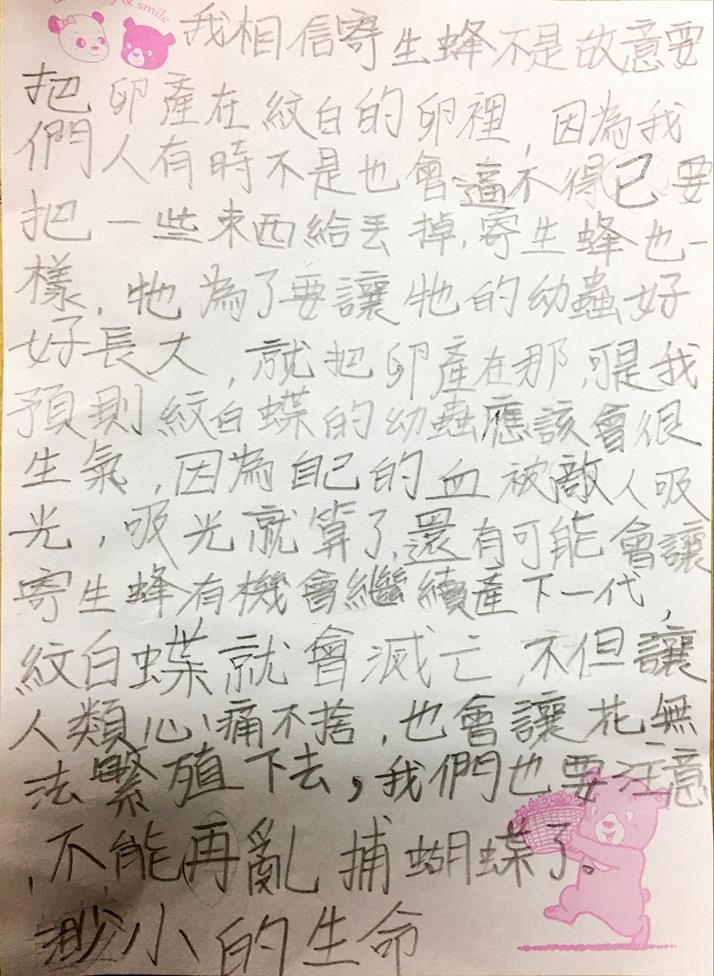 & smile
我相信寄生蜂不是故意要
把卵產在紋白的卵裡，因為我
們人有時不是也會逼不得已要
把一些東西給丟掉，寄生蜂也一
樣，牠為了要讓牠的幼蟲好
好長大，就把卵產在那，可是我
預測紋白蝶的幼蟲應該會很
生氣，因為自己的血被敵人吸
光，吸光就算了，還有可能會讓
寄生蜂有機會繼續產下一代，
紋白蝶就會滅亡，不但讓
人類心痛不捨，也會讓花無
法繁殖下去，我們也要注意
，不能再亂捕蝴蝶了。
渺小的生命